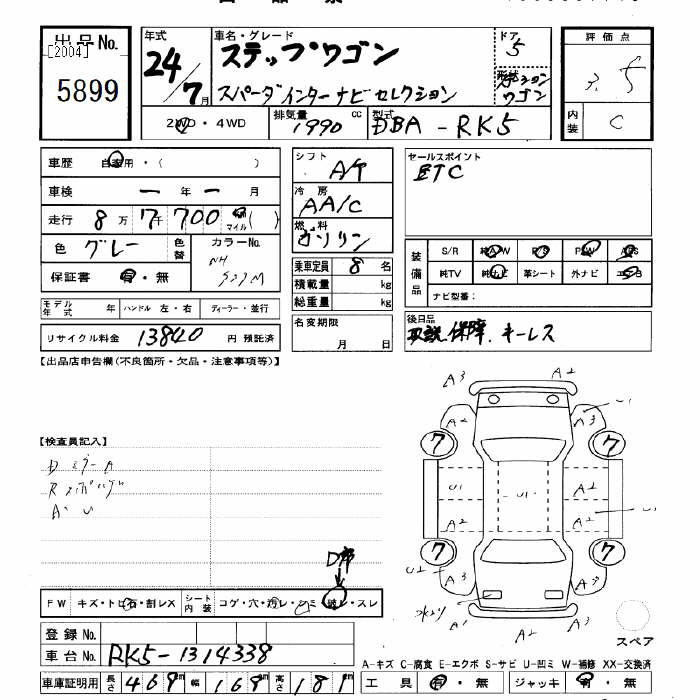 出品No.
[2004]
5899
年式
24/7月
車名・グレード
ステップワゴン
スパーダインターナビセレクション
ドア
5
形状
ステーション
ワゴン
2WD・4WD
排気量
1990
cc
型式
DBA-RK5
評価点
3.5
内装
C
車歴 自家用・( )
車検 一年一月
走行 8万7千700 km マイル( )
色 グレー
色替
カラーNo.
NH
保証書 有・無
モデル年式 年 ハンドル 左・右 ディーラー・並行
リサイクル料金 13840 円 預託済
シフト
A/T
冷房
AA/C
燃料
ガソリン
乗車定員 8 名
積載量 kg
総重量 kg
名変期限
月 日
セールスポイント
ETC
装備品
S/R 純A/W P/S P/W ABS
純TV 純ナビ 革シート 外ナビ エアB
ナビ型番:
後日品
取説、保障、キーレス
【出品店申告欄(不良箇所・欠品・注意事項等)】
【検査員記入】
DミラーA
A・U
D席
FW キズ・トビ石・割レX
シート内装 コゲ・穴・汚レ・シミ・破レ・スレ
登録No.
車台No. RK5-1314338
車庫証明用 長さ 469 幅 169 高さ 181
A3
A2
U1
A3
A2
7
7
U1
U1
A2
A2
A2
7
7
U2
A3
A3
A2
スペア
A-キズ C-腐食 E-エクボ S-サビ U-凹ミ W-補修 XX-交換済
工具 有・無 ジャッキ 有・無